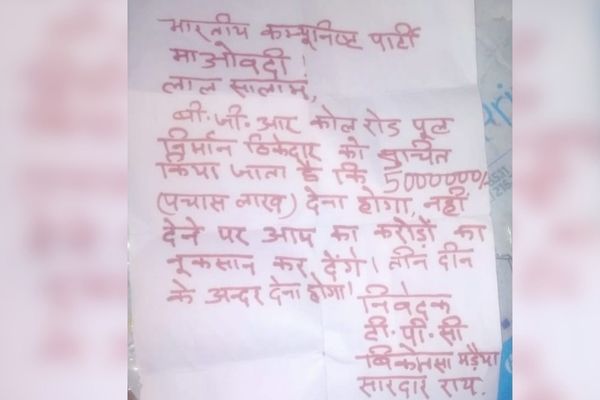 भारतीय कम्यूनिष्ट पार्टी
माओवदी।
लाल सालाम,
बी.जी.आर कोल रोड पूल
निर्मान ठिकेदार को सुचित
किया जाता है कि 5000000/-
(पचास लाख) देना होगा, नही
देने पर आप का करोड़ों का
नूकसान कर देंगे। तीन दीन
के अन्दर देना होगा।
निवेदक
टी.पी.सी
मड़ैया
सारदार राय.